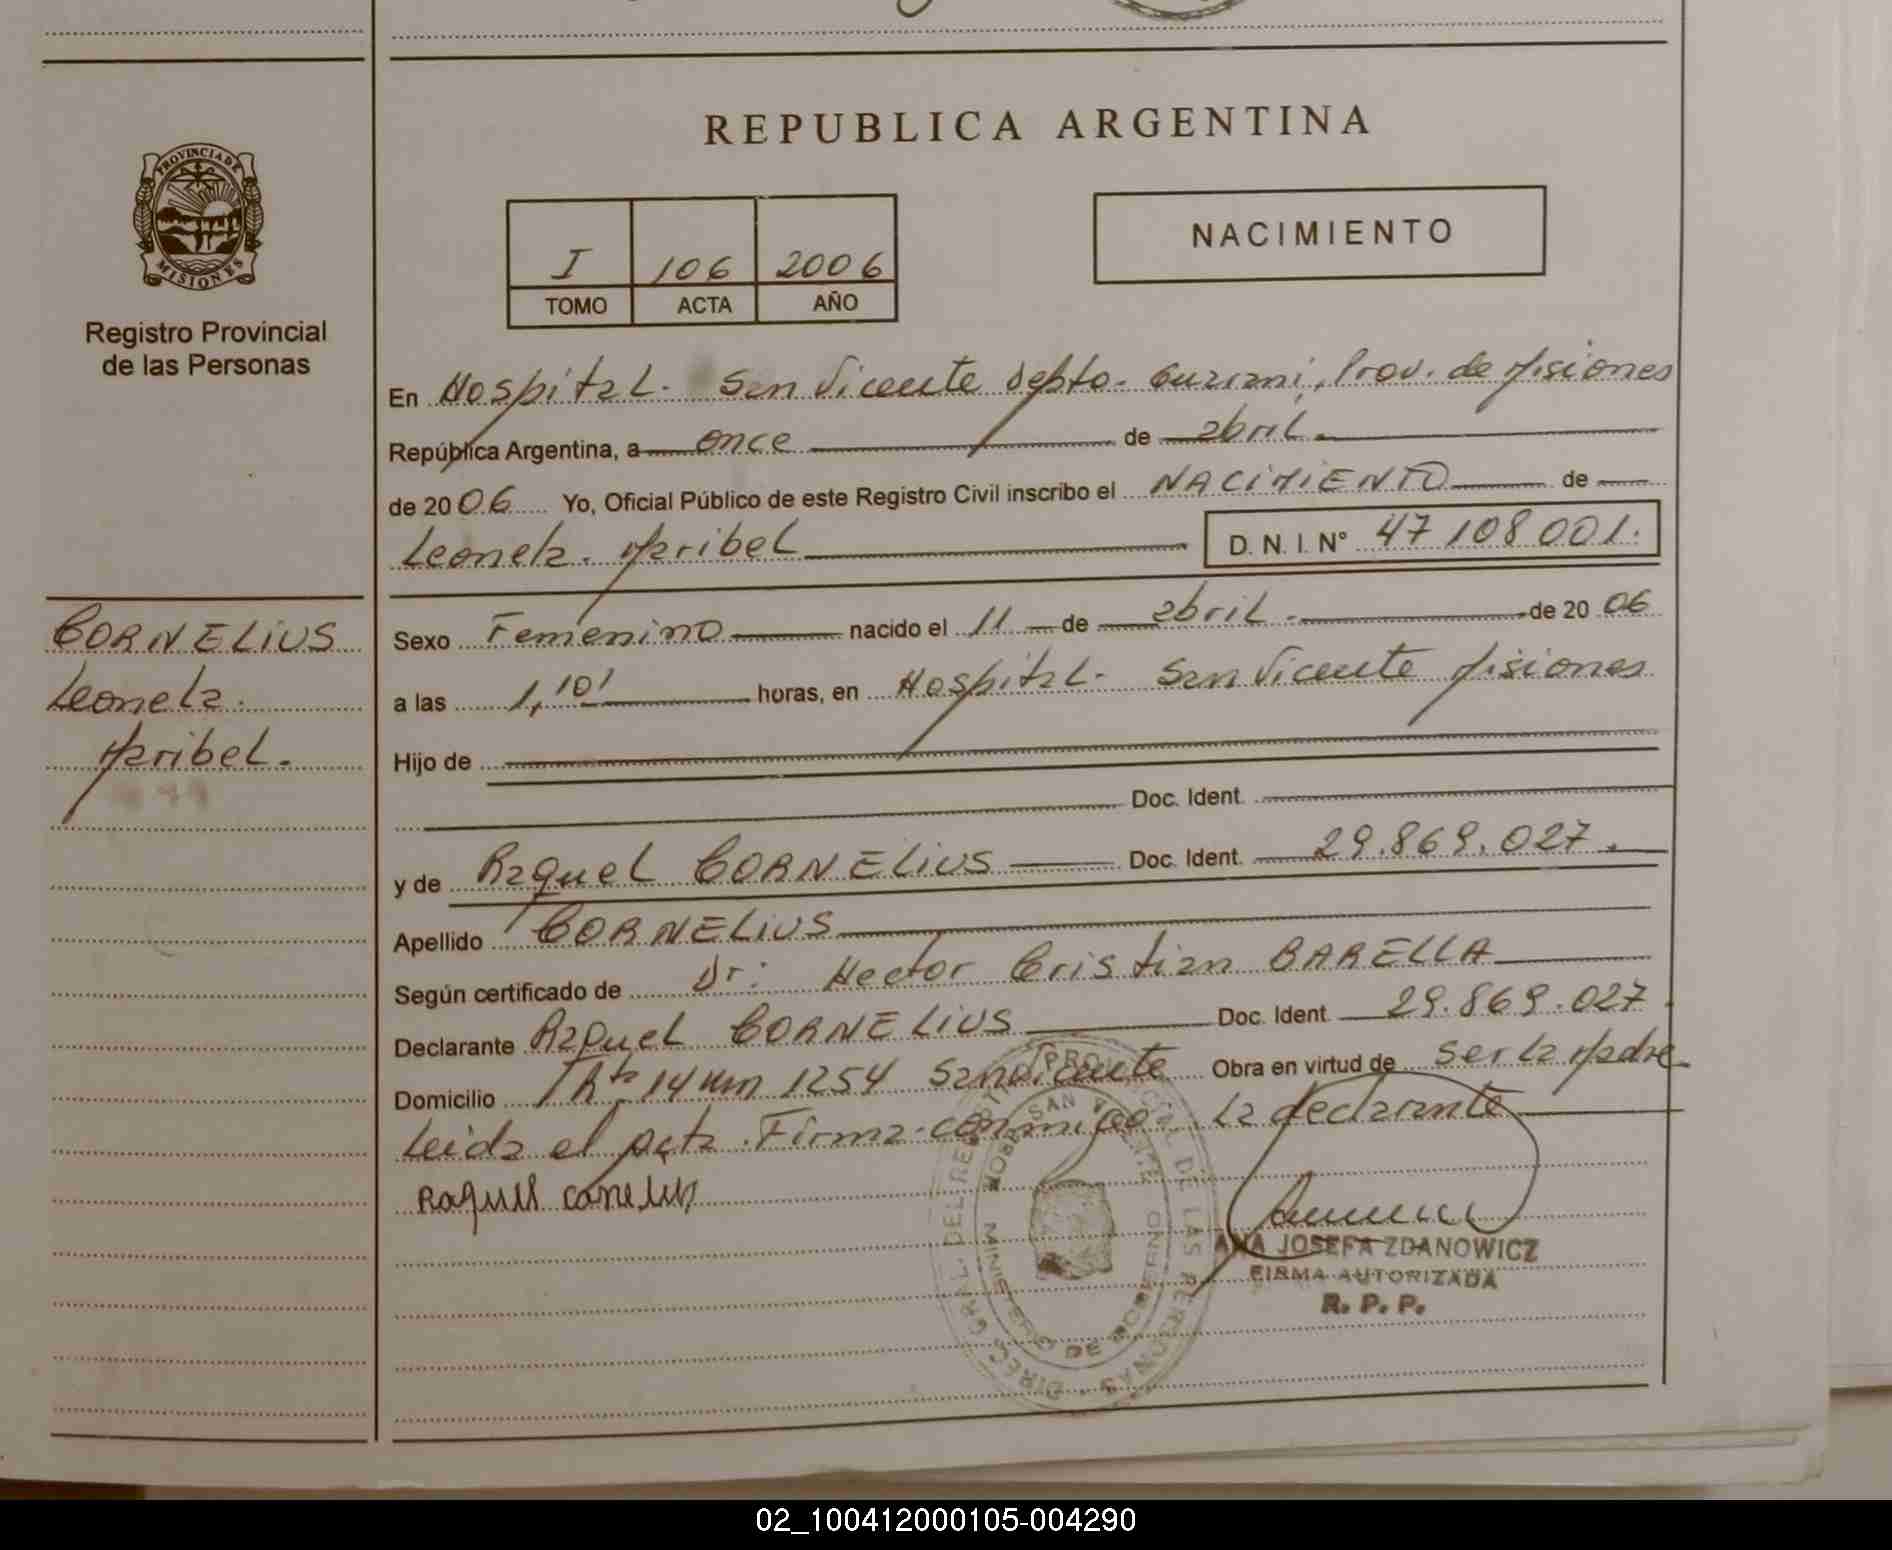 REPUBLICA ARGENTINA
PROVINCIA DE
MISIONES
Registro Provincial
de las Personas
I 106 2006
TOMO ACTA AÑO
NACIMIENTO
En Hospital. San Vicente Depto. Guarani, Prov. de Misiones
República Argentina, a once de abril.
de 2006 Yo, Oficial Público de este Registro Civil inscribo el NACIMIENTO de
Leonela. Maribel
D. N. I. N° 47108001.
CORNELIUS
Leonela.
Maribel.
Sexo Femenino nacido el 11 de abril. de 2006
a las 1,10' horas, en Hospital. San Vicente Misiones
Hijo de
Doc. Ident.
y de Raquel CORNELIUS Doc. Ident. 29.869.027.
Apellido CORNELIUS
Según certificado de Dr: Hector Cristian BARELLA
Declarante Raquel CORNELIUS Doc. Ident 29.869.027.
Domicilio Rta 14 km 1254 San Vicente Obra en virtud de Ser la Madre
Leida el acta. Firma conmigo. La declarante
ANA JOSEFA ZDANOWICZ
FIRMA AUTORIZADA
R. P. P.
DIREC. GRAL. DEL REGISTRO PROVINCIAL DE LAS PERSONAS
MINISTERIO DE GOBIERNO
SAN VICENTE
02_100412000105-004290